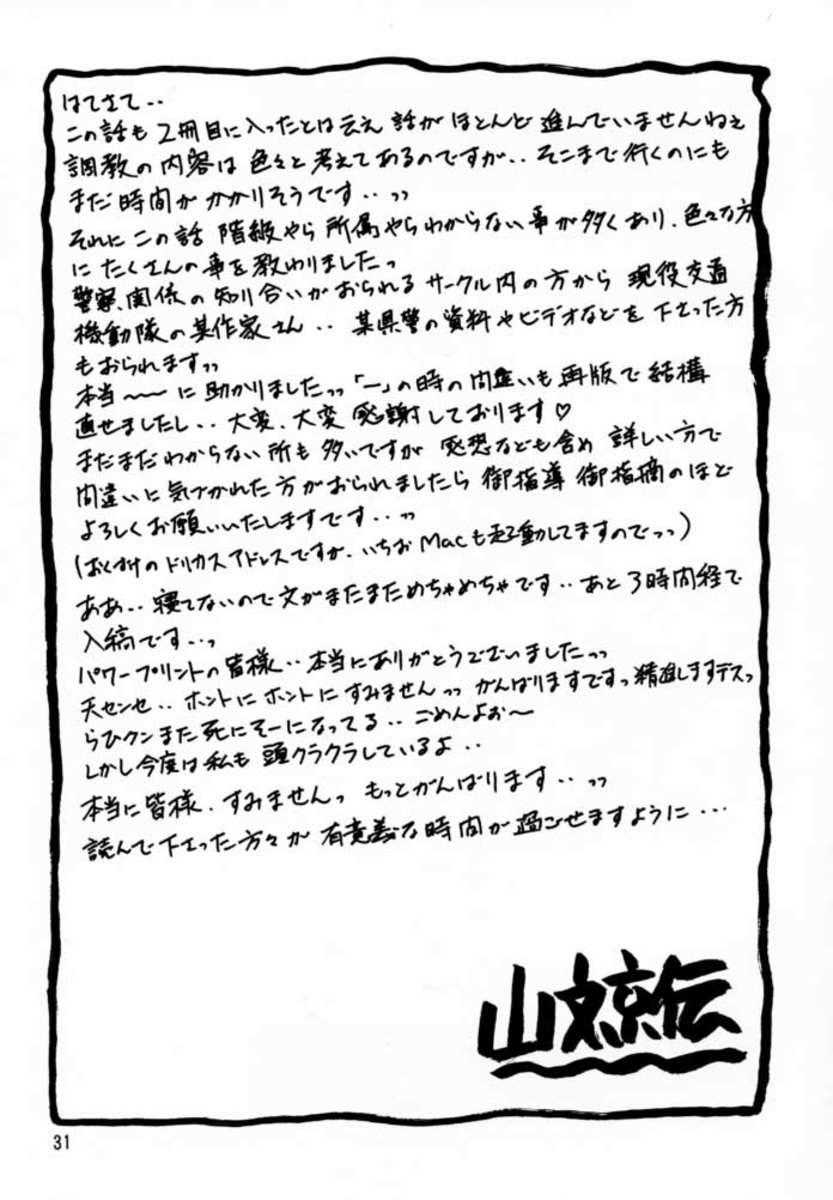 はてさて‥
この話も2冊目に入ったとは云え 話がほとんど進んでいませんねぇ
調教の内容は色々と考えてあるのですが‥そこまで行くのにも
まだ時間がかかりそうです‥ッッ
それに この話 階級やら所属やらわからない事が多くあり、色々な方
に たくさんの事を教わりましたっ
警察関係の知り合いがおられるサークル内の方から 現役交通
機動隊の某作家さん‥ 某県警の資料やビデオなどを下さった方
もおられますッッ
本当〜〜に助かりましたッッ「一」の時の間違いも再版で結構
直せましたし‥大変、大変感謝しております♡
まだまだわからない所も多いですが 感想なども含め 詳しい方で
間違いに気づかれた方がおられましたら 御指導 御指摘のほど
よろしくお願いいたしますです‥ッッ
(おくずけのドリカスアドレスですが、いちおMacも起動してますのでっっ)
ああ‥寝てないので文がまたまためちゃめちゃです‥あと3時間経で
入稿です‥っ
パワープリントの皆様‥本当にありがとうございましたッッ
天センセ‥ホントにホントにすみませんッッ がんばりますですっ精進しますデスっ
らひクンまた死にそーになってる‥ごめんよぉ〜
しかし今度は私も 頭クラクラしているよ‥
本当に皆様、すみませんっ もっとがんばります‥ッッ
読んで下さった方々が 有意義な時間が過ごせますように…
山文京伝
31